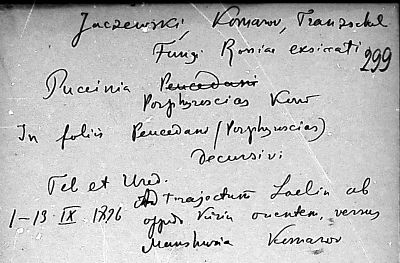 Jaczewski, Komarov, Tranzschel
Fungi Rossiae exsiccati
299
Puccinia Peucedani
Porphyroscias Kom
In foliis Peucedani (Porphyroscias)
decursivi
Tel et Ured.
Ad trajectum Laelin ab
1-13 IX. 1896
oppido Kirin orientem versus
Manshuria Komarov